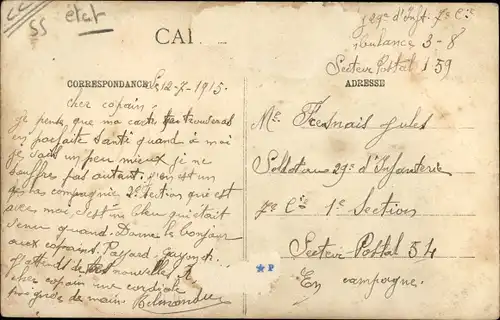 55 état
129e d'Inft. 7e Cie
3-8
Secteur Postal 159
CAR
CORRESPONDANCE
ADRESSE
Le 12-7-1915.
cher copain.
Je pense que ma carte te trouveras
en parfaite santé quand à moi
je suis un peu mieux je ne
souffre pas autant. j'en est un
compagnie 2e Section qui est
avec moi, c'est un bleu qui était
venu quand. Donne le bonjour
aux copains. Payard.
J'attends de tes nouvelles
cher copain une cordiale
poignée de main
Mr Fresnais Jules
Soldat au 29e d'Infanterie
7e Cie 1e Section
Secteur Postal 54
En campagne.
P